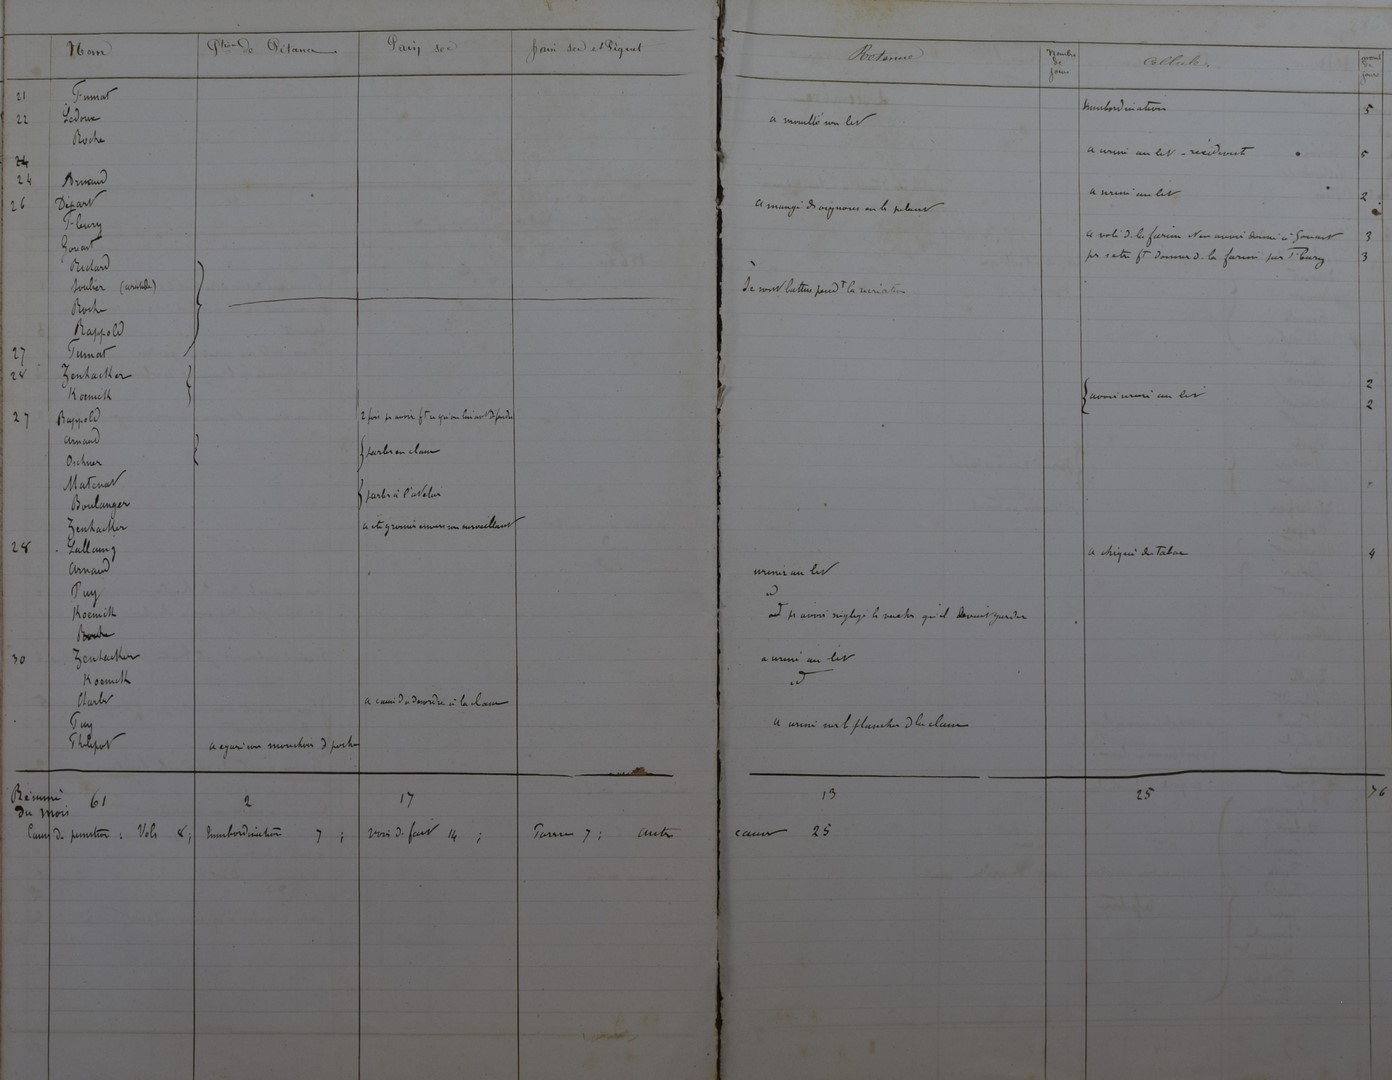 Nom Pain sec pain sec et Piquet Retenue Nombre de jours Cellule
21 Tumat Insubordination 5
22 Ledoux a mouillé son lit
Roche a uriné au lit - récidiviste 5
24
24 Arnaud a uriné au lit 2
26 Départ a mangé des oignons
Fleury a volé de la farine donné à Gouart 3
Gouart donner de la farine par Fleury 3
Richard
Soulier Se sont battus pendt la récréation
Roche
Rappold
27 Tumat
28 Zenhacker 2
Koenick avoir uriné au lit 2
27 Rappold 2 fois pr avoir ft ce qu'on lui avt défendu
Arnaud parler en classe
Oschner
Maternat parler à l'atelier
Boulanger
Zenhacker son surveillant
28 Lallaury a chiqué du tabac 4
Arnaud uriner au lit
Puy id
Koenick id pr avoir négligé qu'il devait garder
Roche
30 Zenhacker a uriné au lit
Koenick id
Charles a causé du désordre à la classe
Puy a uriné sur le plancher de la classe
Philipot a égaré son mouchoir de poche
Résumé du mois 61 2 17 13 25 76
Causes de punition : Vols 8 ; Insubordination 7 ; voies de fait 14 ; 7 ; autres causes 25